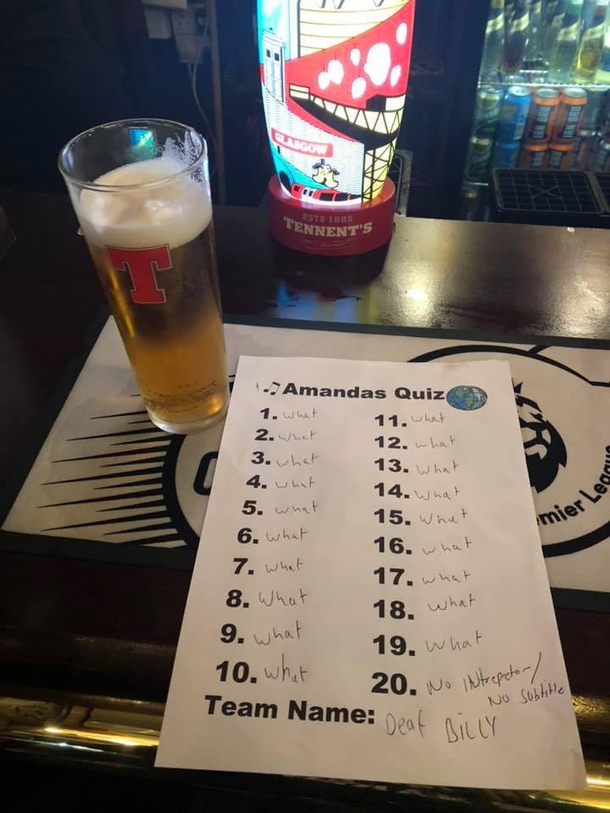 GLASGOW
ESTD 1885
TENNENT'S
T
Amandas Quiz
1. what
2. what
3. what
4. what
5. what
6. what
7. what
8. what
9. what
10. what
11. what
12. what
13. what
14. what
15. what
16. what
17. what
18. what
19. what
20. No INtrepretor/
No Subtitle
Team Name: Deaf BILLY
mier League